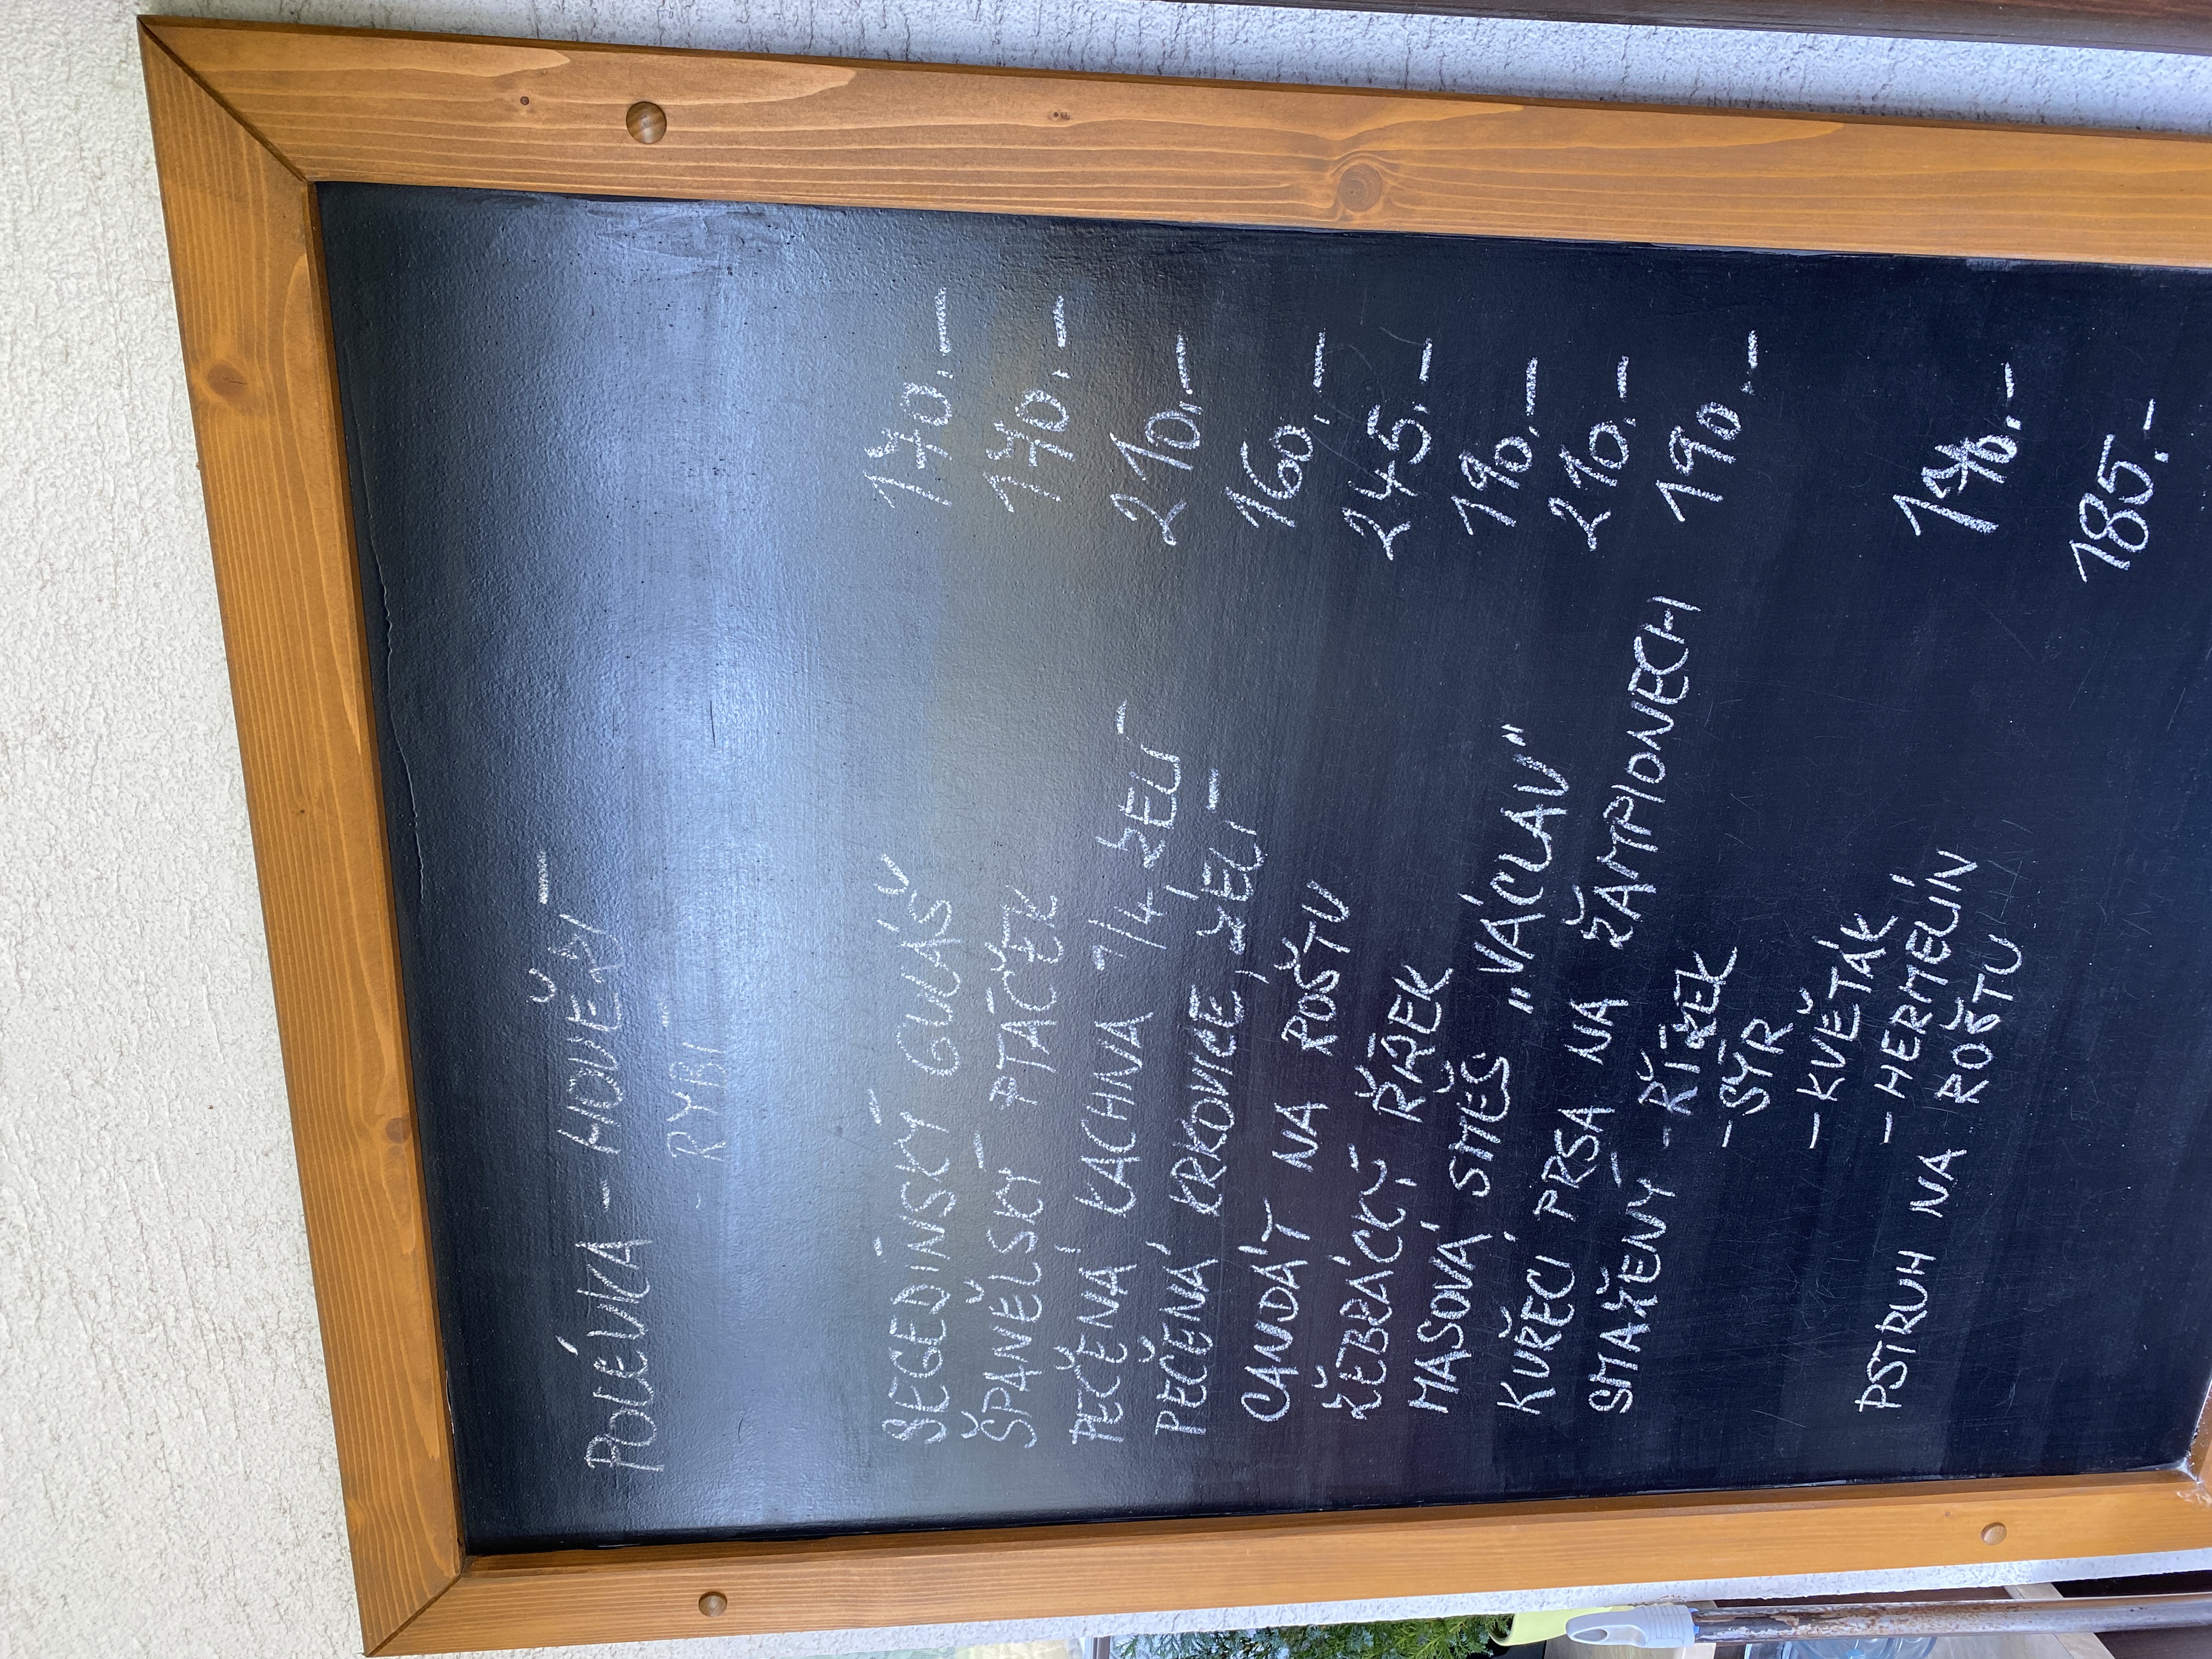 POLÉVKA - HOVĚZÍ
- RYBÍ
SEGEDÍNSKÝ GULÁŠ 170.-
ŠPANĚLSKÝ PTÁČEK 170.-
PEČENÁ KACHNA 1/4 ZELÍ 210.-
PEČENÁ KRKOVICE, ZELÍ 160.-
CANDÁT NA ROŠTU 245.-
ŽEBRÁCKÝ ŘÍZEK 190.-
MASOVÁ SMĚS „VÁCLAV" 210.-
KUŘECÍ PRSA NA ŽAMPIONECH 190.-
SMAŽENÝ - ŘÍZEK
- SÝR
- KVĚTÁK
- HERMELÍN 170.-
PSTRUH NA ROŠTU 185.-